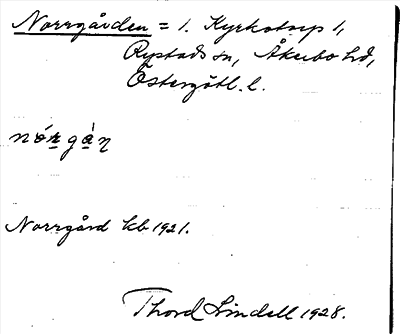 Norrgården = 1. Kyrkotorp 1,
Rystads sn, Åkerbo hd,
Östergötl. l.
nórgàn
Norrgård kb 1921.
Thord Lindell 1928.